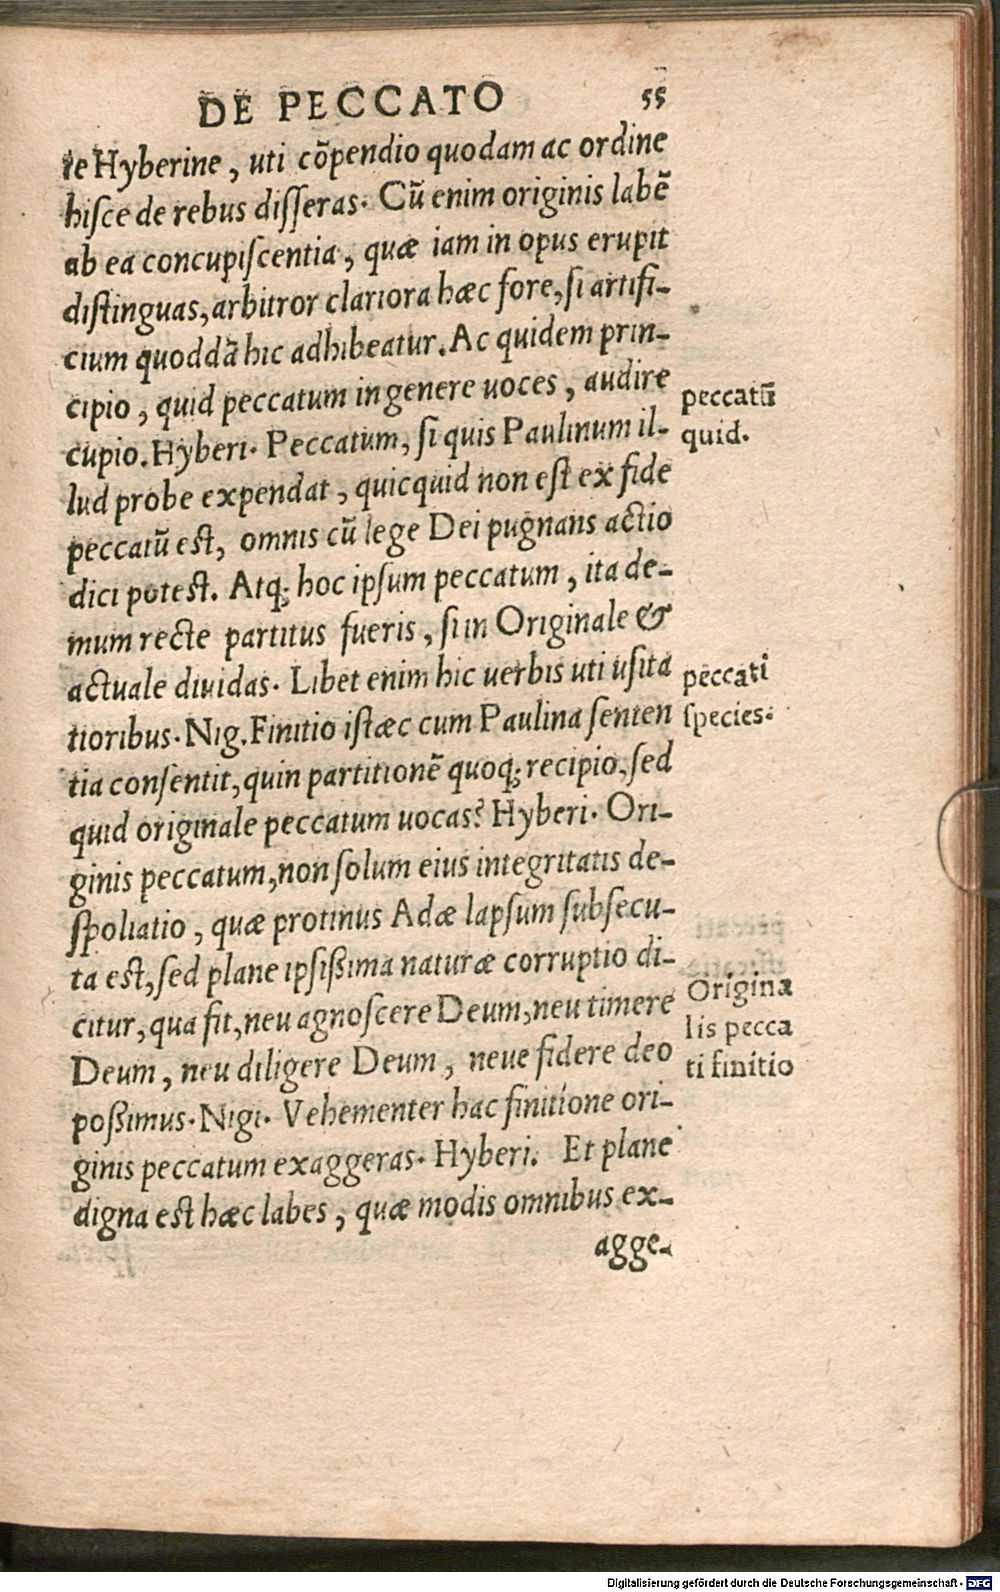 DE PECCATO 55
te Hyberine, uti cõpendio quodam ac ordine
hisce de rebus disseras. Cũ enim originis labẽ
ab ea concupiscentia, quæ iam in opus erupit
distinguas, arbitror clariora hæc fore, si artifi-
cium quoddã hic adhibeatur. Ac quidem prin-
cipio, quid peccatum in genere uoces, audire
cupio. Hyberi. Peccatum, si quis Paulinum il-
lud probe expendat, quicquid non est ex fide
peccatũ est, omnis cũ lege Dei pugnans actio
dici potest. Atq; hoc ipsum peccatum, ita de-
mum recte partitus fueris, si in Originale &
actuale diuidas. Libet enim hic uerbis uti usita
tioribus. Nig. Finitio istæc cum Paulina senten
tia consentit, quin partitionẽ quoq; recipio, sed
quid originale peccatum uocas? Hyberi. Ori-
ginis peccatum, non solum eius integritatis de-
spoliatio, quæ protinus Adæ lapsum subsecu-
ta est, sed plane ipsißima naturæ corruptio di-
citur, qua fit, neu agnoscere Deum, neu timere
Deum, neu diligere Deum, neue fidere deo
poßimus. Nigi. Vehementer hac finitione ori-
ginis peccatum exaggeras. Hyberi. Et plane
digna est hæc labes, quæ modis omnibus ex-
agge-
peccatũ
quid.
peccati
species.
Origina
lis pecca
ti finitio
Digitalisierung gefördert durch die Deutsche Forschungsgemeinschaft - DFG